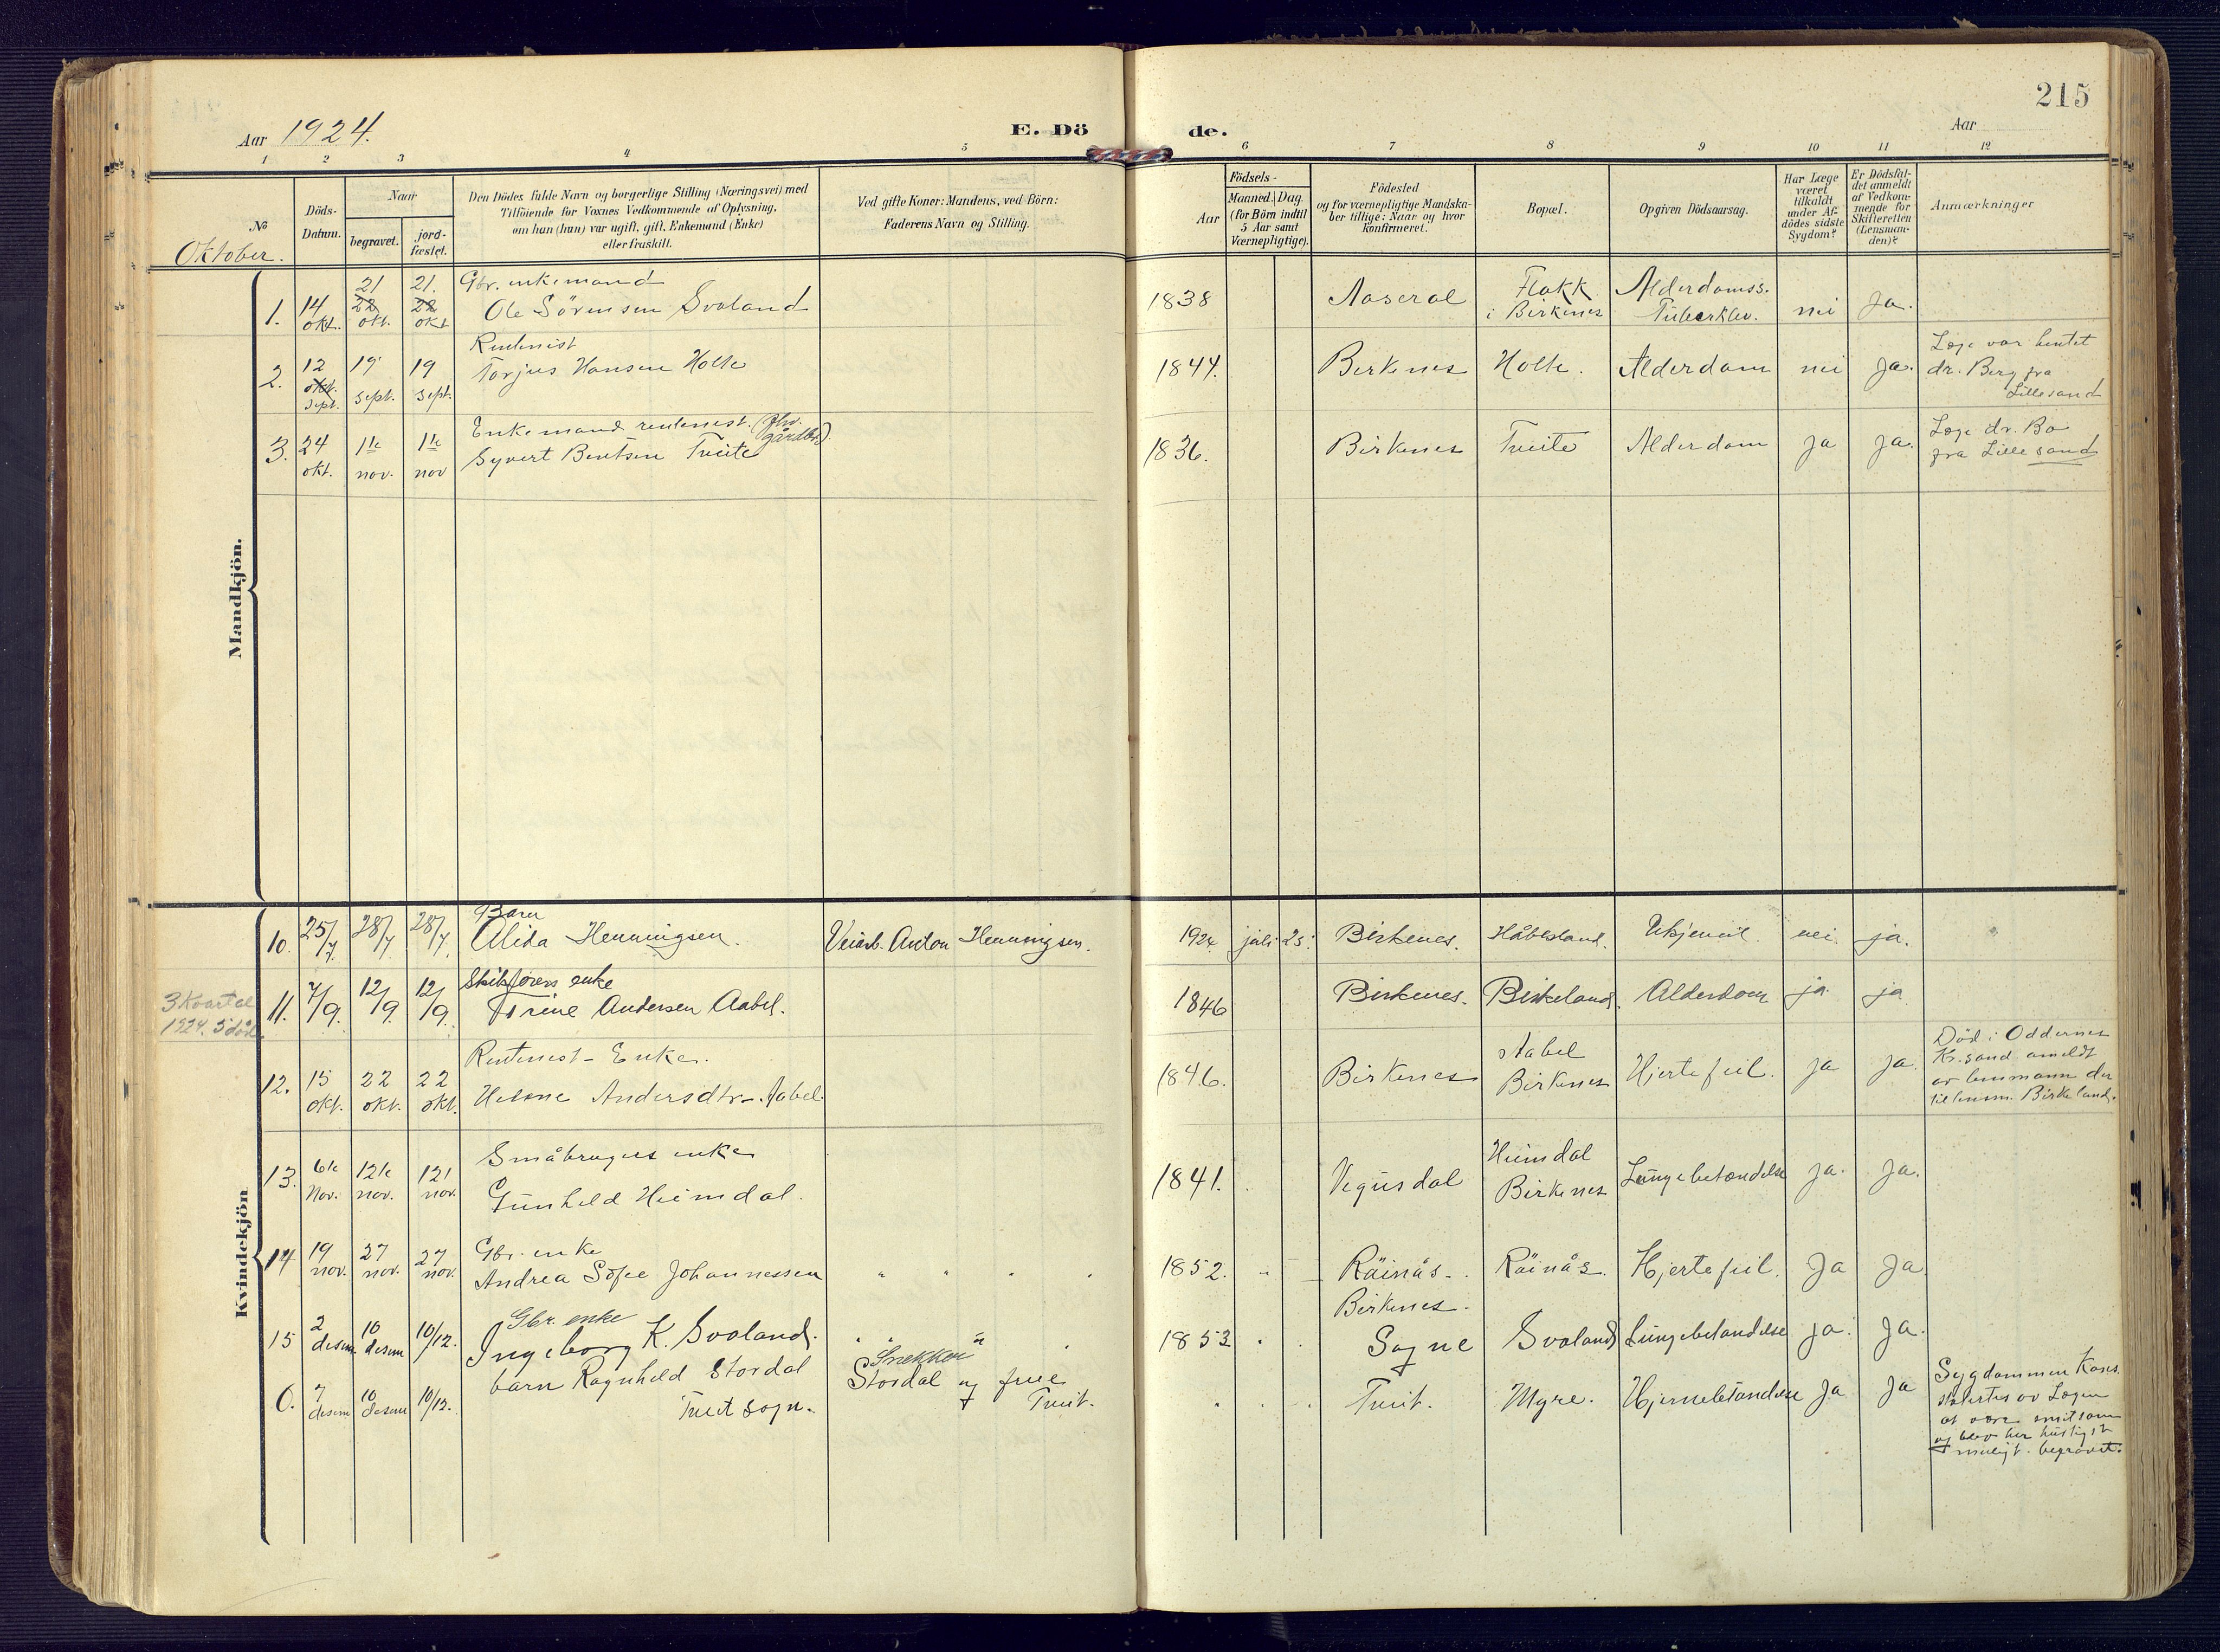 215
Aar 1924.
E. Dö de.
Aar
1 2 3 4 5 6 7 8 9 10 11 12
No
Döds-Datum.
Naar
begravet.
jord-fæstet.
Den Dödes fulde Navn og borgerlige Stilling (Næringsvei) med
Tilföiende for Voxnes Vedkommende af Oplysning,
om han (hun) var ugift, gift, Enkemand (Enke)
eller fraskilt.
Ved gifte Koner: Mandens, ved Börn:
Faderens Navn og Stilling.
Födsels-
Aar
Maaned. Dag.
(for Börn indtil
5 Aar samt
Værnepligtige).
Födested
og for værnepligtige Mandska-
ber tillige: Naar og hvor
konfirmeret.
Bopæl.
Opgiven Dödsaarsag.
Har Læge
været
tilkaldt
under Af-
dödes sidste
Sygdom?
Er Dödsfal-
det anmeldt
af Vedkom-
mende for
Skifteretten
(Lensman-
den)?
Anmærkninger
Oktober.
Mandkjön.
1. 14 okt. 21 22 okt. 21. 22 okt Gbr. enkemand
Ole Sörensen Svaland
1838 Aaseral Flakk
i Birkenes Alderdomss.
Tuberklev. nei Ja.
2. 12 okt. sept. 19 sept. 19 sept. Rentenist
Torjus Hansen Holte
1844. Birkenes Holte. Alderdom nei Ja. Læge var hentet
dr. Berg fra
Lillesand
3. 24 okt. 1ste nov. 1ste nov Enkemand rentenist. (fhv. gårdbr.)
Syvert Bentsen Tveite
1836. Birkenes Tveite Alderdom ja ja. Læge dr. Bo
fra Lillesand
Kvindekjön
10. 25/7. 28/7 28/7. Barn
Alida Henningsen.
Veiarb. Anton Henningsen.
1924 juli 25. Birkenes. Håbbesland. Ukjendt nei ja.
3 Kvartal
1924. 5 död
11. 7/9. 12/9 12/9. Skibsførers enke
Trine Andersen Aabel.
1846 Birkenes. Birkeland. Alderdom ja ja
12. 15 okt. 22 okt. 22 okt. Rentenist-Enke.
Helene Andersdtr. Aabel.
1846. Birkenes Aabel
Birkenes Hjertefeil. ja ja. Död i Oddernes
Kr.sand ameldt
av lensmann der
til lensm. Birkeland.
13. 6te Nov. 12te nov. 12t nov. Småbrugers enke
Gunhild Heimdal.
1841. Vegusdal Heimdal
Birkenes Lungebetændelse ja. Ja.
14 19 nov. 27 nov. 27 nov. Gbr. enke
Andrea Sofie Johannessen
1852. Räinås-
Birkenes. Räinås. Hjertefeil. Ja Ja.
15 2 desem 10 desem 10/12. Gbr. enke
Ingeborg K. Svaland.
1853 Sogne Svaland Lungebetændelse ja. Ja.
0. 7 desem 10 desem 10/12. barn Ragnhild Stordal
Tveit sogn.
Snekker
Stordal og frue
Tveit.
Tveit. Myre. Hjernebetændelse Ja Ja Sygdommen kons-
tatertes av Lægen
at være smitsom
og blev her hurtigst
muligt begravet.